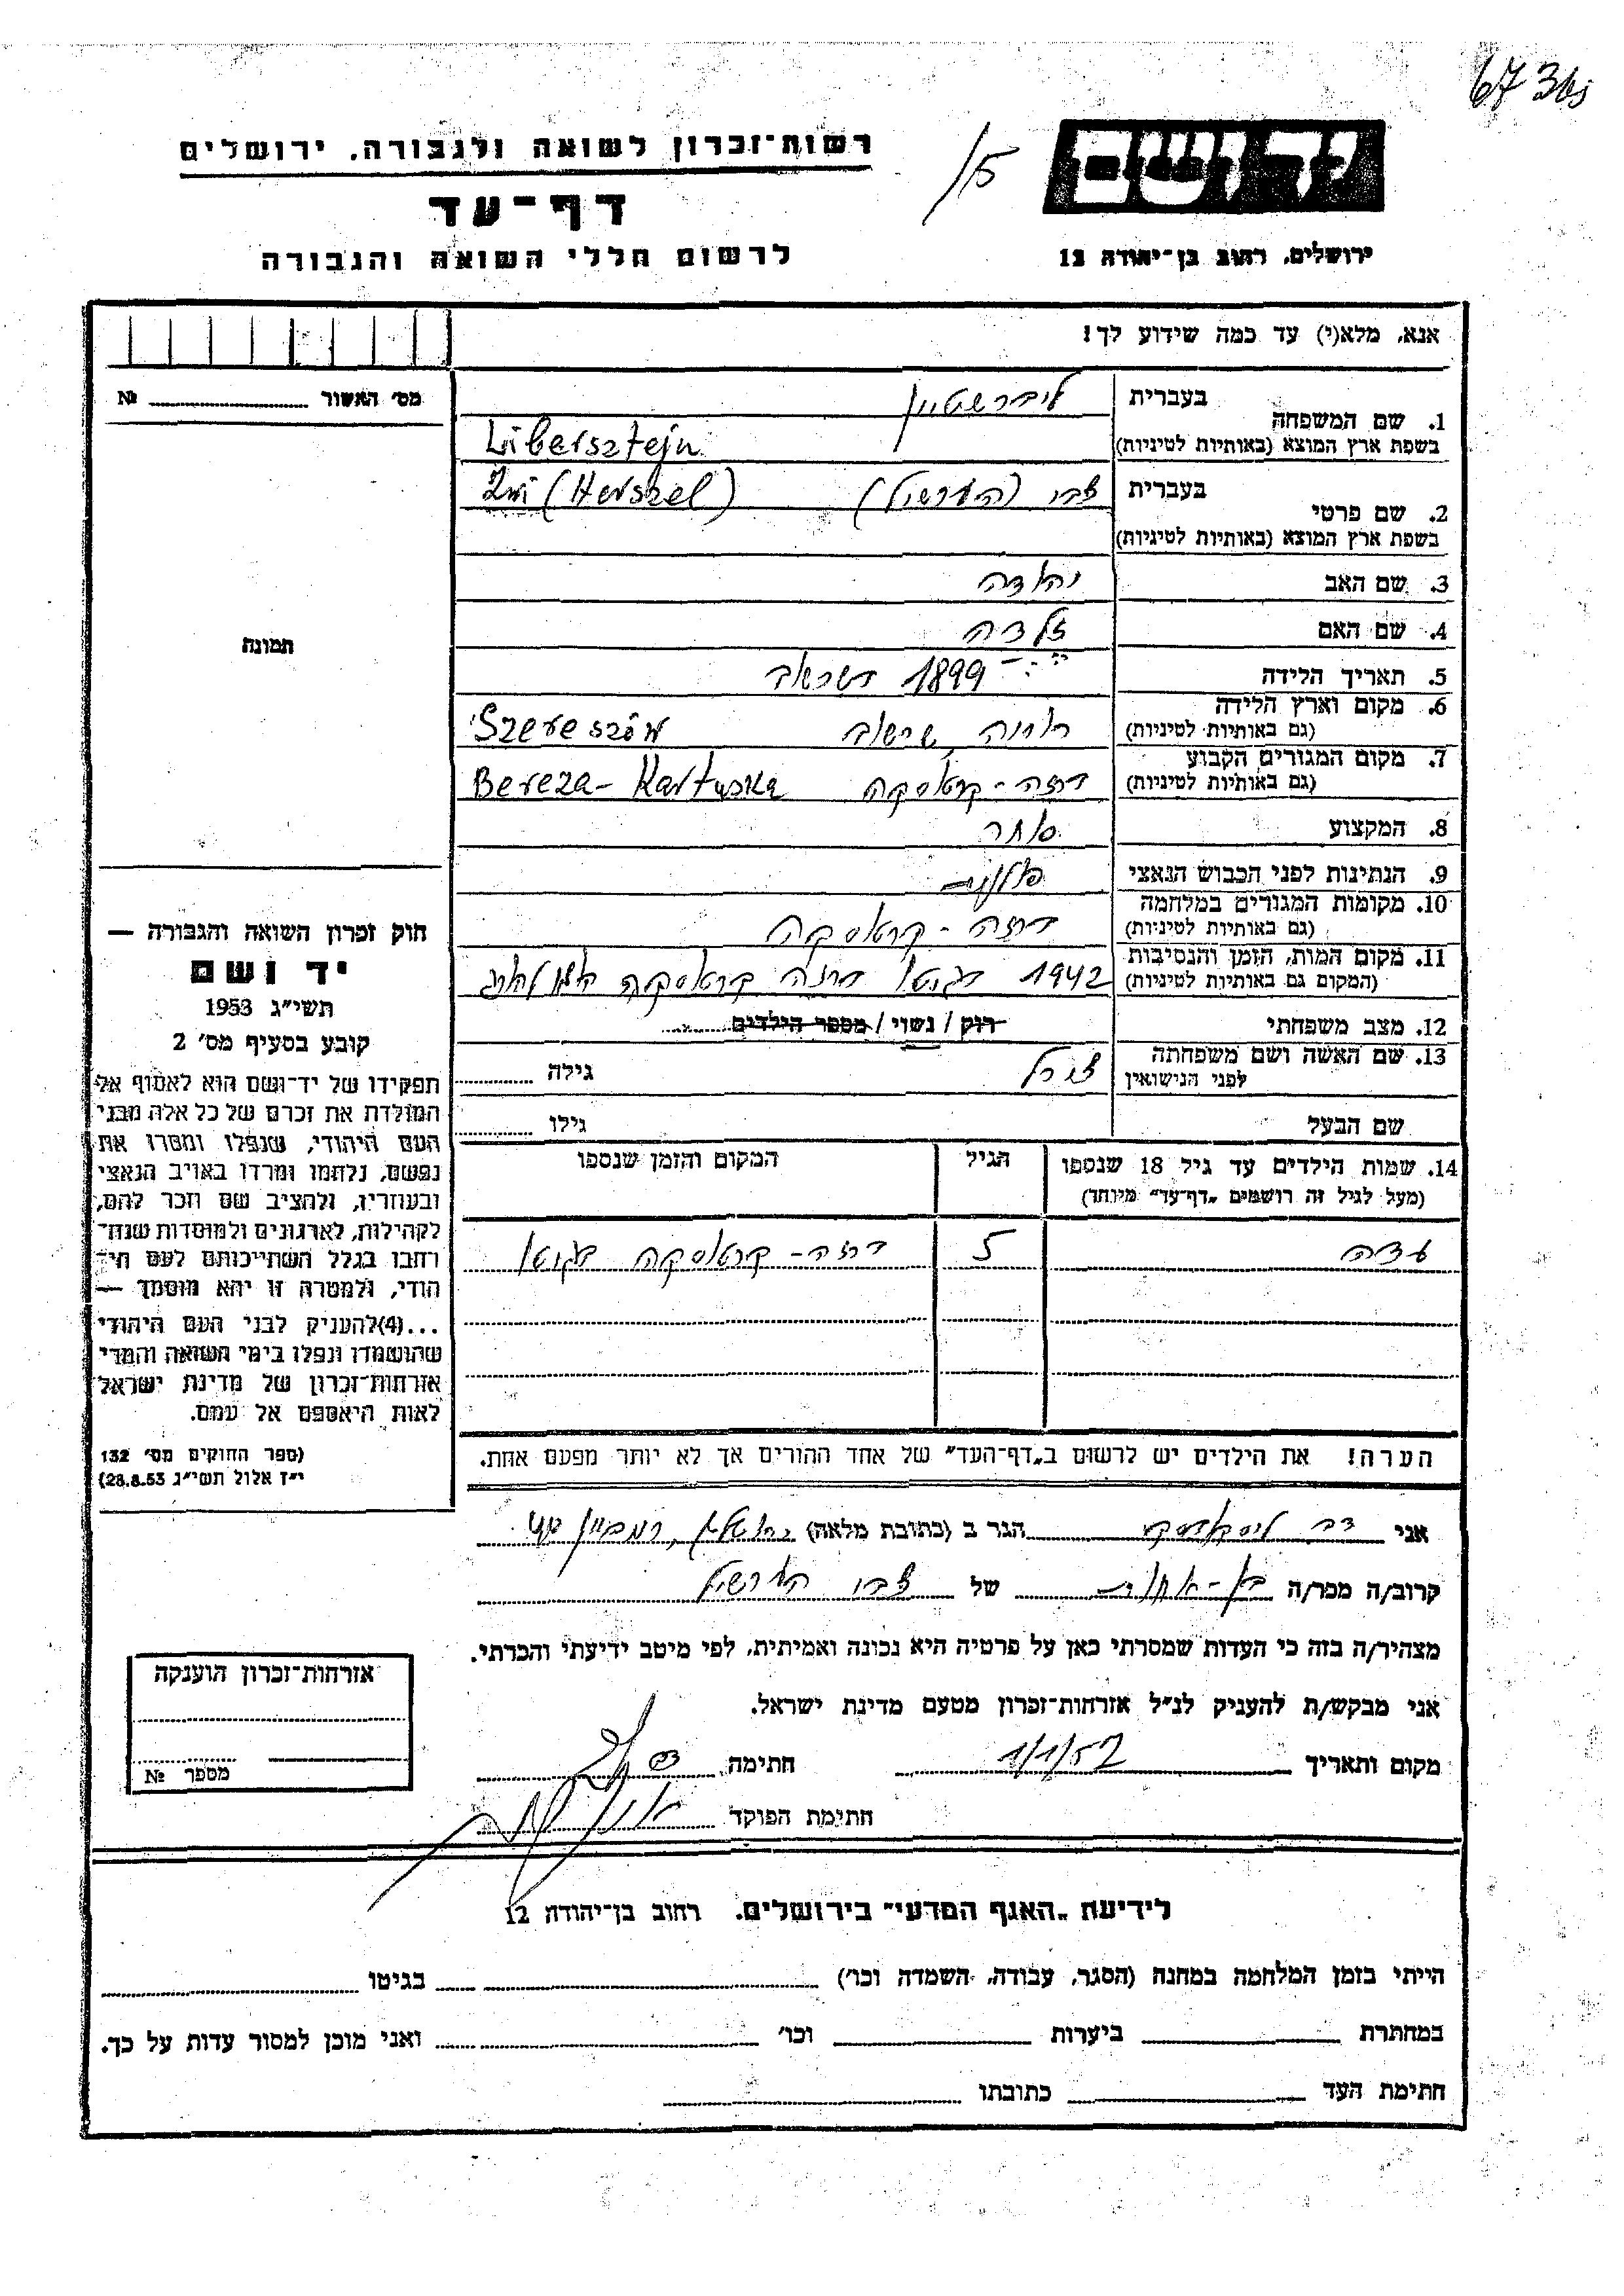 רשות־זכרון לשואה ולגבורה, ירושלים
דף־עד
לרשום חללי השואה והגבורה
15
יד ושם
ירושלים, רחוב בן־יהודה 12
אנא, מלא(י) עד כמה שידוע לך!
מס׳ האשור № 
1. שם המשפחה
בעברית ליברשטיין
בשפת ארץ המוצא (באותיות לטיניות) Libersztejn
2. שם פרטי
בעברית צבי (הערשיל) Zwi (Herszel)
בשפת ארץ המוצא (באותיות לטיניות)
3. שם האב יהודה
4. שם האם זלדה
5. תאריך הלידה 1899
6. מקום וארץ הלידה
(גם באותיות לטיניות) שרשוב Szereszów
7. מקום המגורים הקבוע
(גם באותיות לטיניות) ברזה - קרטוסקה Bereza - Kartuska
8. המקצוע סוחר
9. הנתינות לפני הכבוש הנאצי פולנית
10. מקומות המגורים במלחמה
(גם באותיות לטיניות) ברזה - קרטוסקה
11. מקום המות, הזמן והנסיבות
(המקום גם באותיות לטיניות) 1942 בגטו ברזה קרטוסקה
12. מצב משפחתי רוק / נשוי / מספר הילדים
13. שם האשה ושם משפחתה
לפני הנישואין גילה
שם הבעל גילו
14. שמות הילדים עד גיל 18 שנספו
(מעל לגיל זה רושמים „דף־עד״ מיוחד)
הגיל
המקום והזמן שנספו
עדה 5 ברזה - קרטוסקה בגטו
הערה! את הילדים יש לרשום ב„דף־העד״ של אחד ההורים אך לא יותר מפעם אחת.
תמונה
חוק זכרון השואה והגבורה —
יד ושם
תשי״ג 1953
קובע בסעיף מס׳ 2
תפקידו של יד־ושם הוא לאסוף אל
המולדת את זכרם של כל אלה מבני
העם היהודי, שנפלו ומסרו את
נפשם, נלחמו ומרדו באויב הנאצי
ובעוזריו, ולהציב שם וזכר להם,
לקהילות, לארגונים ולמוסדות שנח־
רבו בגלל השתייכותם לעם הי־
הודי, ולמטרה זו יהא מוסמך —
...(4)להעניק לבני העם היהודי
שהושמדו ונפלו בימי השואה והמרי
אזרחות־זכרון של מדינת ישראל
לאות היאספם אל עמם.
(ספר החוקים מס׳ 132
י״ז אלול תשי״ג 28.8.53)
אני דב הגר ב (כתובת מלאה)
קרוב/ה מכר/ה בן-אחות של צבי הערשיל
מצהיר/ה בזה כי העדות שמסרתי כאן על פרטיה היא נכונה ואמיתית, לפי מיטב ידיעתי והכרתי.
אני מבקש/ת להעניק לנ״ל אזרחות־זכרון מטעם מדינת ישראל.
מקום ותאריך חתימה
חתימת הפוקד
אזרחות־זכרון הוענקה
מספר №
לידיעת „האגף המדעי״ בירושלים, רחוב בן־יהודה 12
הייתי בזמן המלחמה במחנה (הסגר, עבודה, השמדה וכו׳) בגיטו
במחתרת ביערות וכו׳ ואני מוכן למסור עדות על כך.
חתימת העד כתובתו